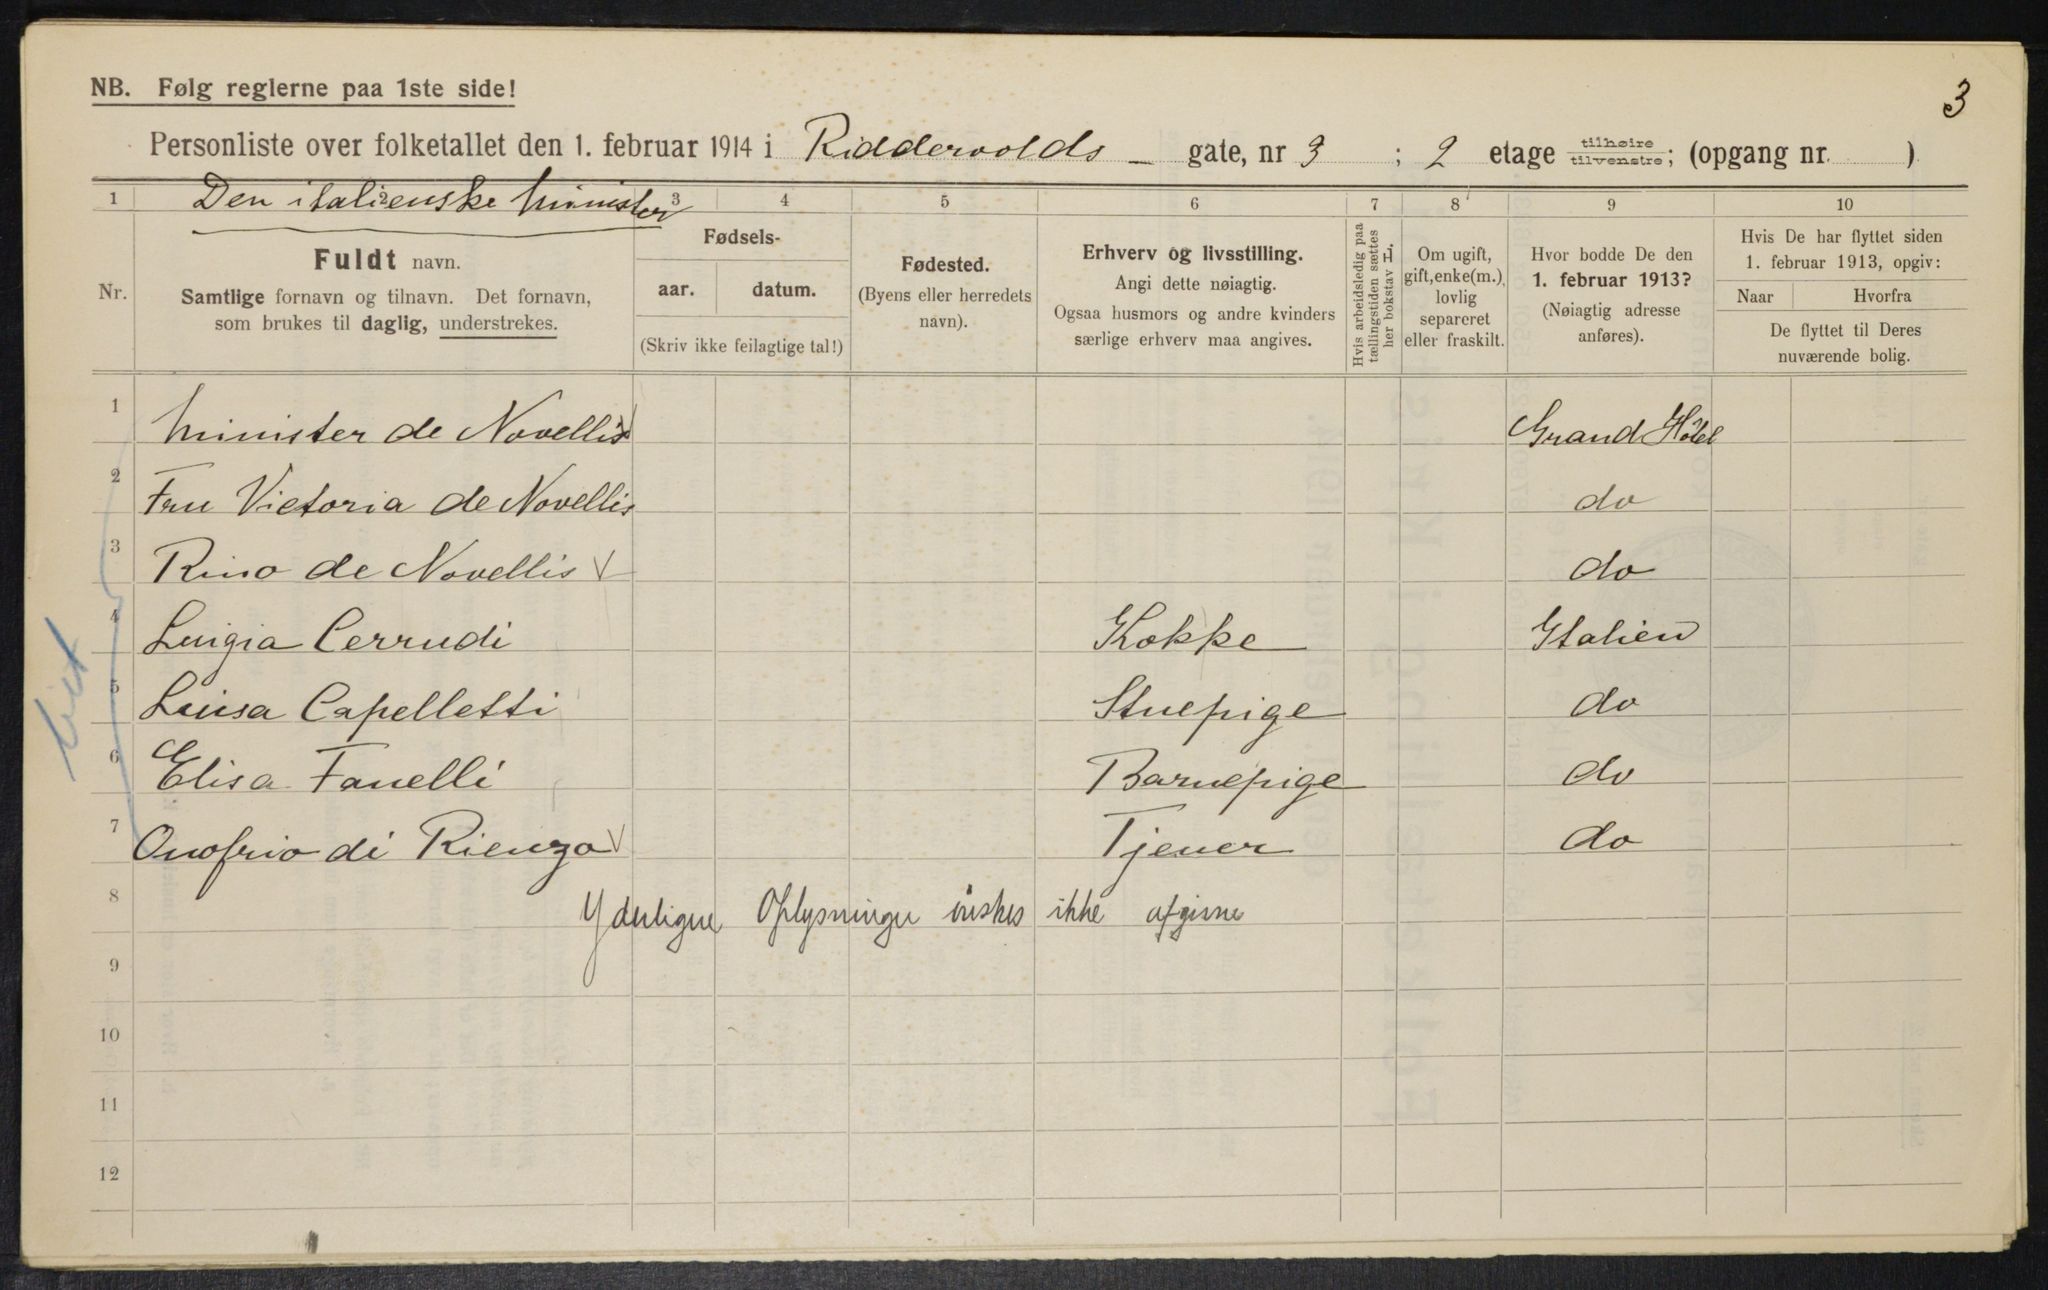 3
NB. Følg reglerne paa 1ste side!
Personliste over folketallet den 1. februar 1914 i Riddervolds gate, nr 3 ; 2 etage tilhøire tilvenstre; (opgang nr. )
Den italienske Minister
1 2 3 4 5 6 7 8 9 10
Nr.
Fuldt navn.
Samtlige fornavn og tilnavn. Det fornavn,
som brukes til daglig, understrekes.
Fødsels-
aar. datum.
(Skriv ikke feilagtige tal!)
Fødested.
(Byens eller herredets
navn).
Erhverv og livsstilling.
Angi dette nøiagtig.
Ogsaa husmors og andre kvinders
særlige erhverv maa angives.
Hvis arbeidsledig paa
tællingstiden sættes
her bokstav L.
Om ugift,
gift, enke(m.),
lovlig
separeret
eller fraskilt.
Hvor bodde De den
1. februar 1913?
(Nøiagtig adresse
anføres).
Hvis De har flyttet siden
1. februar 1913, opgiv:
Naar Hvorfra
De flyttet til Deres
nuværende bolig.
1 Minister de Novellis Grand Hôtel
2 Fru Victoria de Novellis do
3 Rino de Novellis do
4 Luigia Cerrudi Kokke Italien
5 Luisa Capelletti Stuepige do
6 Elisa Fanelli Barnepige do
7 Onofrio di Rienzo Tjener do
8 Yderligere Oplysninger ønskes ikke afgivne
9
10
11
12